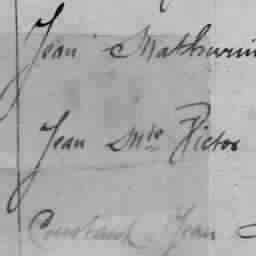 Jean Mathurin
Jean Mie Victor
Constant Jean